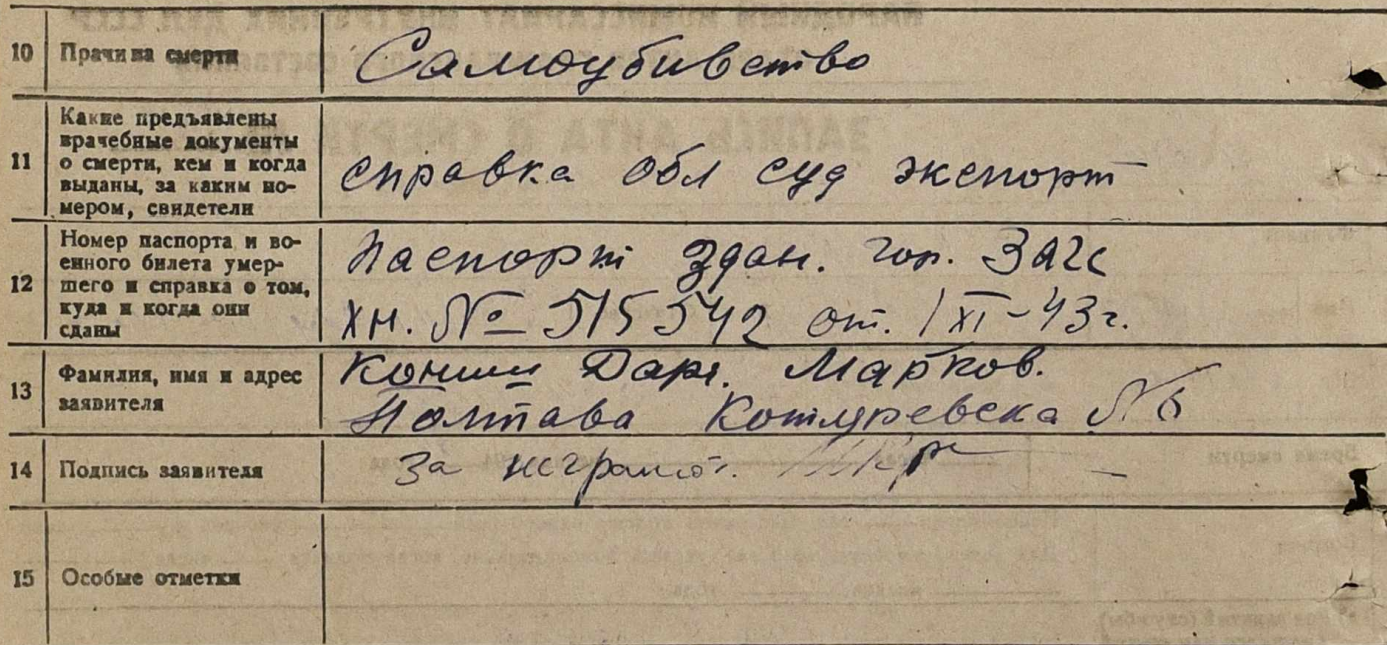 10 Причина смерти Самоубивство
11 Какие предъявлены
врачебные документы
о смерти, кем и когда
выданы, за каким но-
мером, свидетели
справка обл суд экспорт
12 Номер паспорта и во-
енного билета умер-
шего и справка о том,
куда и когда они
сданы
Паспорт здан. гор. ЗАГС
хн. № 515542 от. 1 XI-43 г.
13 Фамилия, имя и адрес
заявителя
Дар. Марков.
Полтава №
14 Подпись заявителя За неграмот.
15 Особые отметки